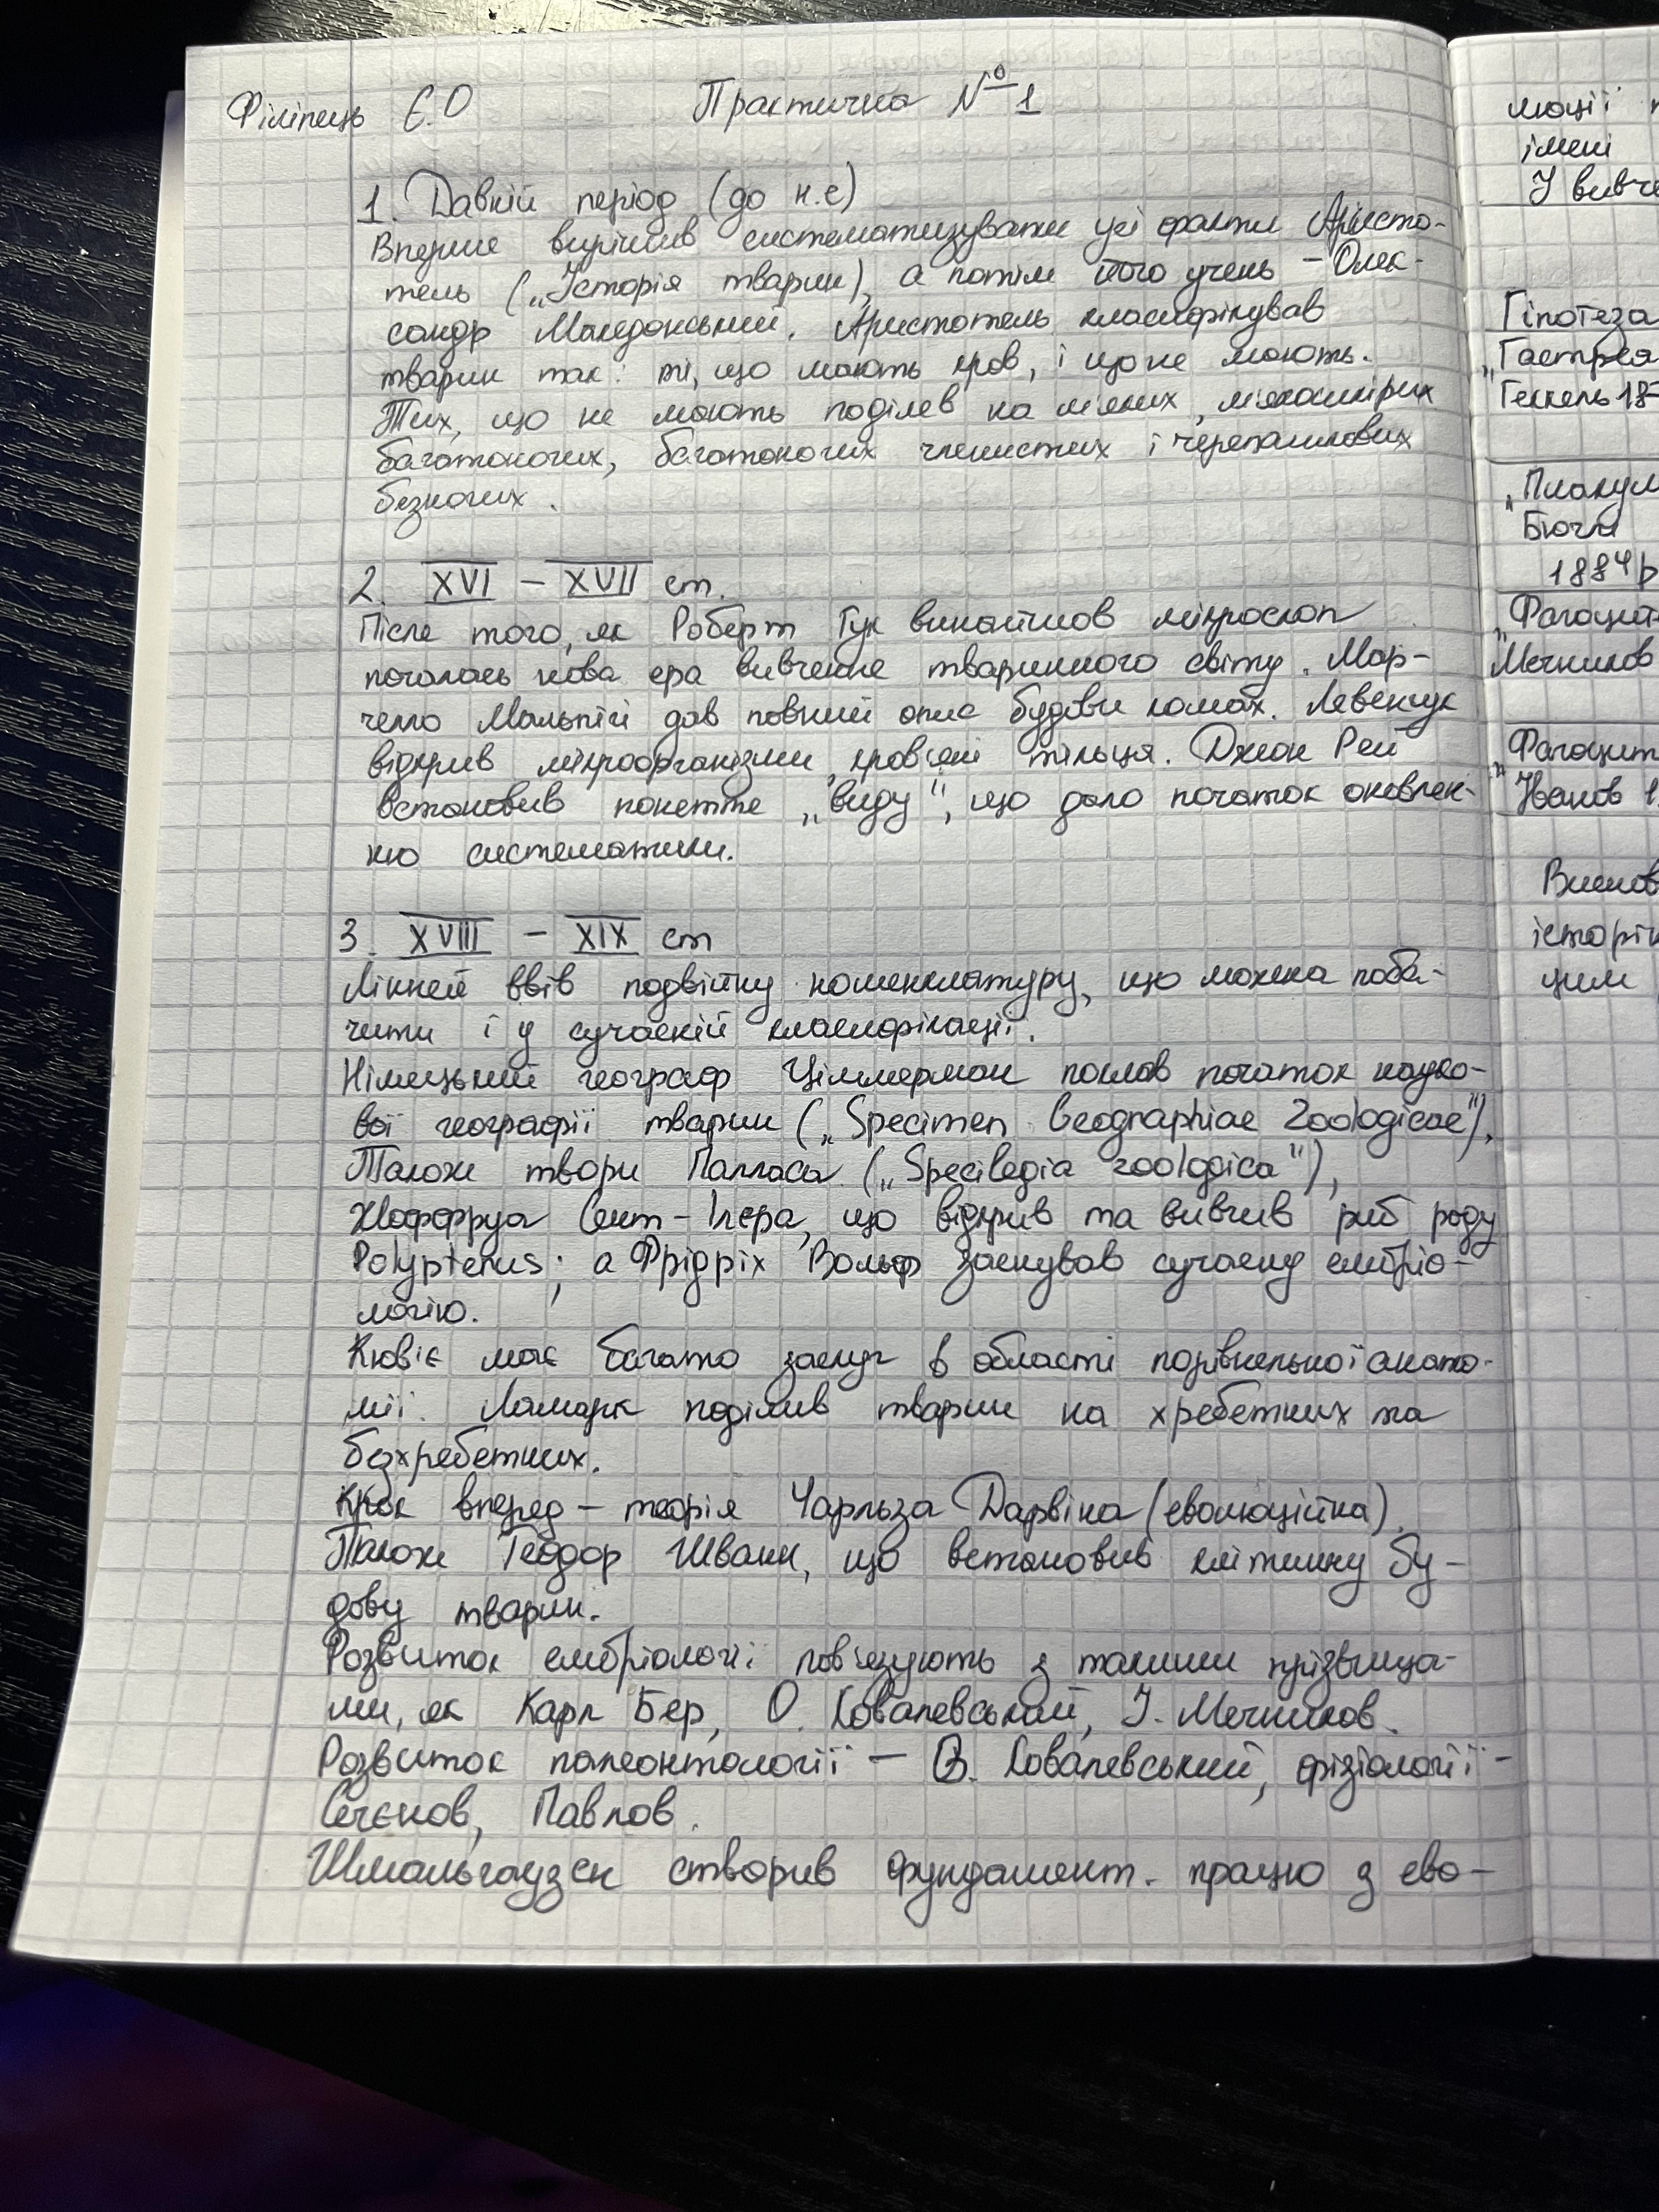 Філіпець Є.О
Практична № 1
1. Давній період (до н.е)
Вперше вирішив систематизувати усі факти Аристо-
тель („Історія тварин), а потім його учень – Олек-
сандр Македонський. Аристотель класифікував
тварин так: ті, що мають кров, і що не мають.
Тих, що не мають поділев на мʼяких, мʼякошкірих
багатоногих, багатоногих членистих і черепашкових
безногих.
2. XVI – XVII ст.
Після того, як Роберт Гук винайшов мікроскоп
почалась нова ера вивчення тваринного світу. Мар-
челло Мальпігі дав повний опис будови комах. Левенгук
відкрив мікроорганізми, кровʼяні тільця. Джон Рей
встановив поняття „виду", що дало початок оновлен-
ню систематики.
3. XVIII – XIX ст
Лінней ввів подвійну номенклатуру, що можна поба-
чити і у сучасній класифікації.
Німецький географ Циммерман поклав початок науко-
вої географії тварин („Specimen Geographiae Zoologicae"),
Також твори Палласа („Specilegia zoologica"),
Жоффруа Сент-Ілера, що відкрив та вивчив риб роду
Polypterus; а Фрідріх Вольф заснував сучасну ембріо-
логію.
Кювʼє має багато заслуг в області порівнельної анато-
мії. Ламарк поділив тварин на хребетних та
безхребетних.
Крок вперед – теорія Чарльза Дарвіна (еволюційна).
Також Теодор Шванн, що встановив клітинну бу-
дову тварин.
Розвиток ембріології повʼязують з такими прізвища-
ми, як Карл Бер, О. Ковалевський, І. Мечников.
Розвиток палеонтології – В. Ковалевський, фізіології –
Сєченов, Павлов.
Шмальгаузен створив фундамент. працю з ево-
люції
імені
У вивче
Гіпотеза
„Гастрея
Геккель 18
„Плакул
Бючлі
1884 р
„Фагоцит
Мечников
„Фагоцит
Іванов 1
Виснов
історі
цим